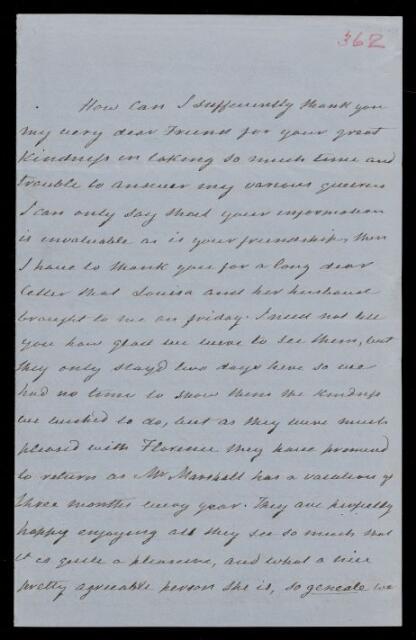 362
How can I sufficiently thank you
my very dear Friend for your great
kindness in taking so much time and
trouble to answer my various queries
I can only say that your information
is invaluable as is your friendship, then
I have to thank you for a long dear
letter that Louisa and her husband
brought to me on friday. I need not tell
you how glad we were to see them, but
they only stayd two days here so we
had no time to show them the kindness
we wished to do, but as they were much
pleased with Florence they have promised
to return as Mr Marshall has a vacation of
three months every year. They are perfectly
happy enjoying all they see so much that
it is quite a pleasure, and what a nice
pretty agreeable person she is, so geneale we